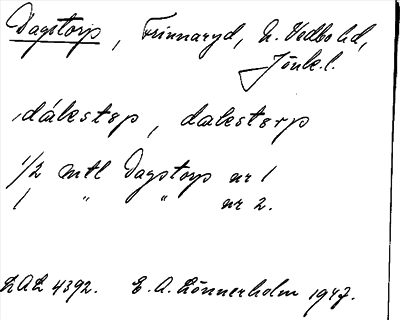 Dagstorp, Frinnaryd, N. Vedbo hd,
Jönk. l.
dákestep, dakesterp
1/2 mtl Dagstorp nr 1
1 " " nr 2.
LAL 4392. E. A. Lönnerholm 1947.